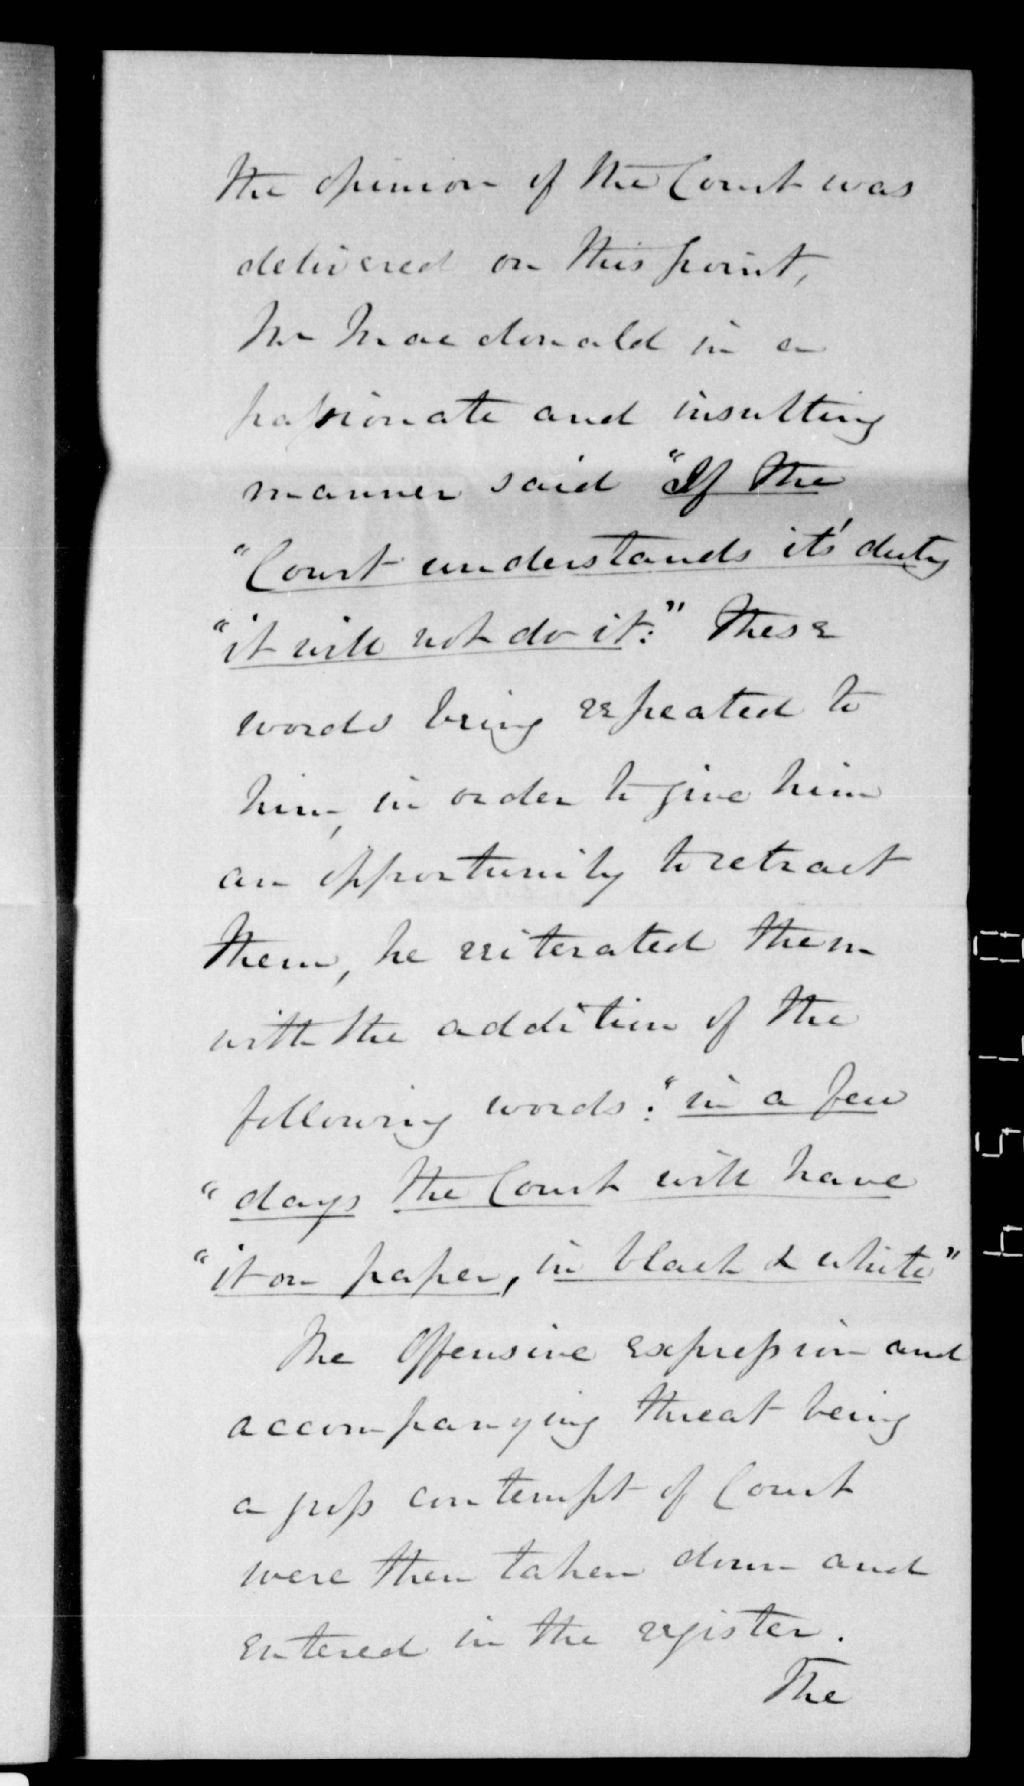 the opinion of the Court was
delivered on this point,
Mr Macdonald in a
passionate and insulting
manner said "If the
"Court understands it's duty
"it will not do it:" These
words being repeated to
him, in order to give him
an opportunity to retract
them, he reiterated them
with the addition of the
following words: "in a few
"days the Court will have
"it on paper, in black & white"
The offensive expression and
accompanying threat being
a gross contempt of Court
were then taken down and
entered in the register.
The